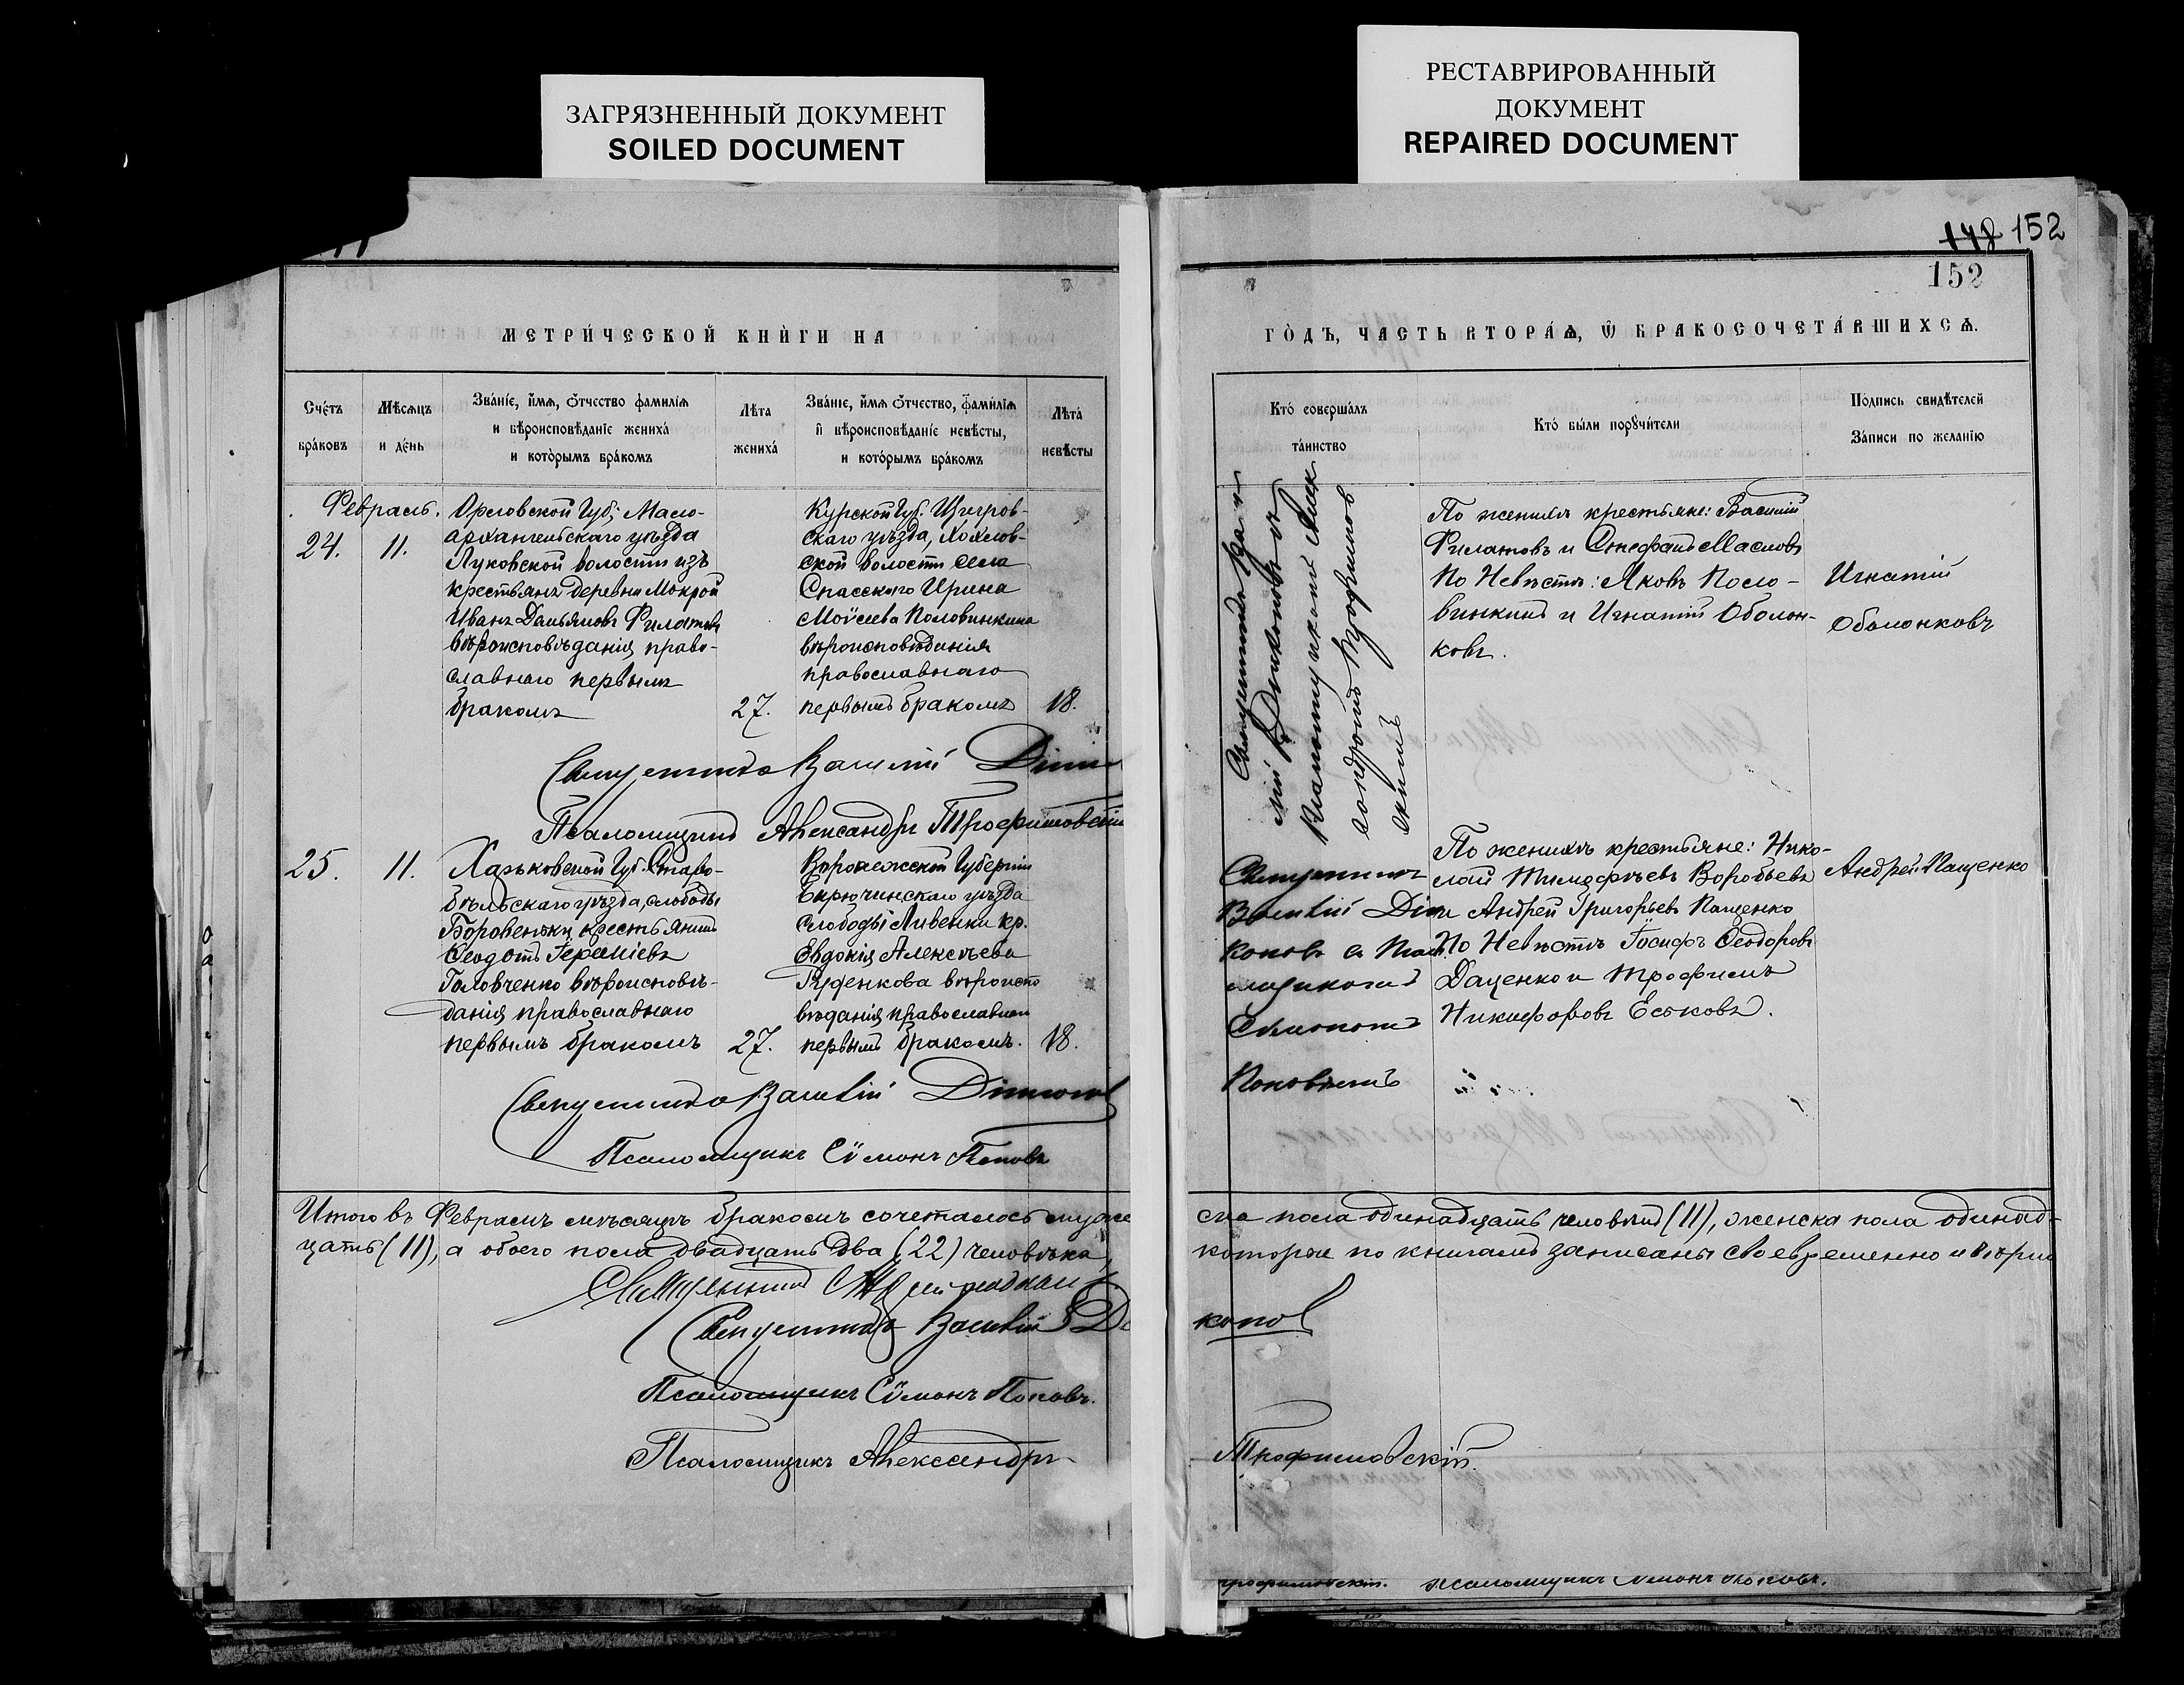 ЗАГРЯЗНЕННЫЙ ДОКУМЕНТ
SOILED DOCUMENT
РЕСТАВРИРОВАННЫЙ
ДОКУМЕНТ
REPAIRED DOCUMENT
148 152
152
МЕТРИ́ЧЕСКОЙ КНИ́ГИ НА
ГО́ДЪ, ЧАСТЬ ВТОРА́Ѧ, Ѿ БРАКОСОЧЕТА́ВШИХСѦ.
Сче́тъ
бра́ковъ
Мѣ́сѧцъ
и де́нь
Зва́нїе, и́мѧ, ѻ́тчество фами́лїѧ
и вѣроисповѣ́данїе жениха́
и кото́рымъ бра́комъ
Лѣ́та
жениха́
Зва́нїе, и́мѧ ѻ́тчество, фами́лїѧ
и вѣроисповѣ́данїе невѣ́сты,
и кото́рымъ бра́комъ
Лѣ́та
невѣ́сты
Кто́ соверша́лъ
та́инство
Кто́ бы́ли порꙋчи́тели
По́дпись свидѣ́телей
За́писи по жела́нїю
Февраль.
24. 11.
Орловской Губ; Мало-
архангельскаго уѣзда
Луковской волости изъ
крестьянъ деревни Мокрой
Иванъ Дамьяновъ Филатовъ
вѣроисповѣданія право-
славнаго первымъ
бракомъ
27.
Курской Губ. Щигров-
скаго уѣзда, Хохлов-
ской волости села
Спасскаго Ирина
Моѵсеева Половинкина
вѣроисповѣданія
православнаго
первымъ бракомъ
18.
Священникъ Василій
Псаломщикъ Александръ Трофимовскій
По женихѣ крестьяне: Василій
Филатовъ и Стефанъ Масловъ
По Невѣстѣ: Яковъ Поло-
винкинъ и Игнатій Оболон-
ковъ.
Игнатій
Оболонковъ
25. 11.
Харьковской Губ. Старо-
бѣльскаго уѣзда, слободы
Боровеньки крестьянинъ
Ѳеодотъ Іереміевъ
Головченко вѣроисповѣ-
данія православнаго
первымъ бракомъ
27.
Воронежской Губерніи
Бирюченскаго уѣзда
слободы Ливенки кр.
Евдокія Алексѣева
Руденкова вѣроиспо
вѣданія православнаго
первымъ бракомъ.
18.
Священникъ Василій
Псаломщикъ Сѵмонъ Поповъ
Василій
Поповымъ
По женихѣ крестьяне: Нико-
лай Тимофѣевъ Воробьевъ
и Андрей Григорьевъ Пащенко
По Невѣстѣ Іосифъ Ѳеодоровъ
Даценко и Трофимъ
Никифоровъ Еськовъ.
Андрей Пащенко
Итого въ Февралѣ мѣсяцѣ бракомъ сочеталось муже
ска пола одинадцать человѣкъ (11), женска пола одинад-
цать (11), а обоего пола двадцать два (22) человѣка,
которые по книгамъ записаны своевременно и вѣрно
Священникъ
Священникъ Василій
Псаломщикъ Сѵмонъ Поповъ.
Псаломщикъ Александръ
Трофимовскій.
Трофимовскій. псаломщикъ Сѵмонъ Поповъ.